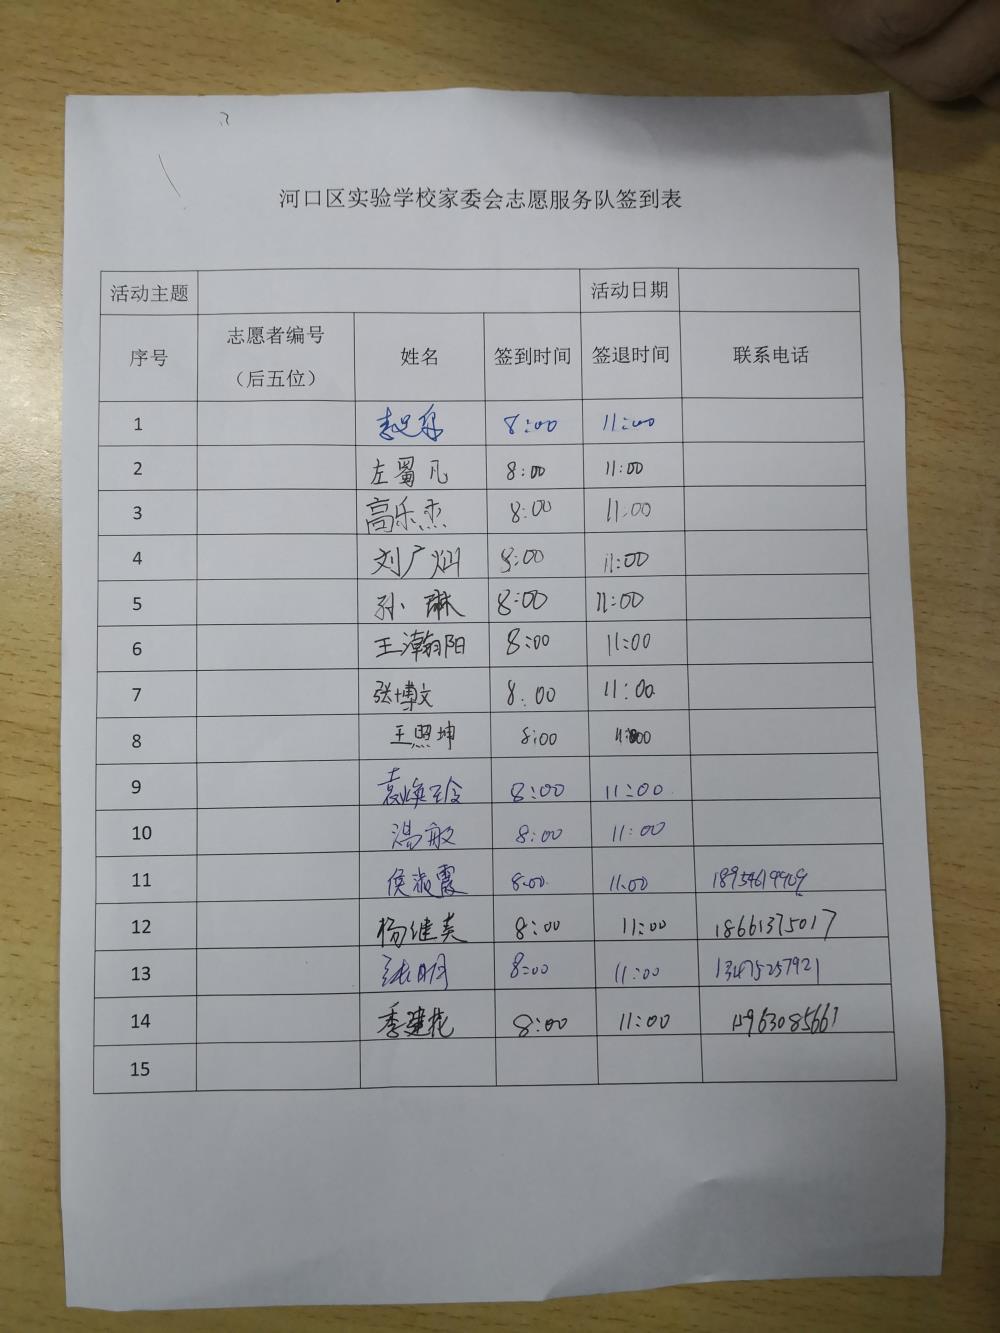 河口区实验学校家委会志愿服务队签到表
活动主题 活动日期
序号 志愿者编号（后五位） 姓名 签到时间 签退时间 联系电话
1 8:00 11:00
2 左蜀凡 8:00 11:00
3 高乐杰 8:00 11:00
4 刘广灿 8:00 11:00
5 孙琳 8:00 11:00
6 王瀚阳 8:00 11:00
7 张博文 8:00 11:00
8 王照坤 8:00 11:00
9 袁焕玲 8:00 11:00
10 汤敏 8:00 11:00
11 侯淑霞 8:00 11:00 18954619909
12 杨继美 8:00 11:00 18661375017
13 张明 8:00 11:00 13475257921
14 季建花 8:00 11:00
15